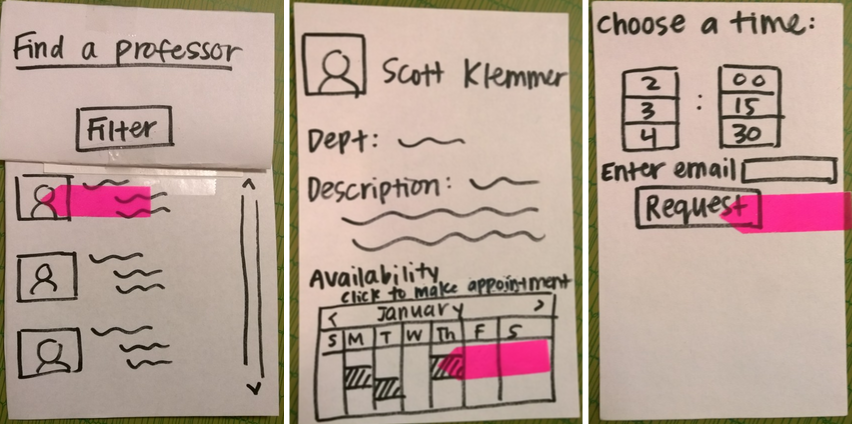 Find a professor
Filter
Scott Klemmer
Dept:
Description:
Availability
click to make appointment
< January >
S M T W Th F S
choose a time:
2 : 00
3 15
4 30
Enter email
Request